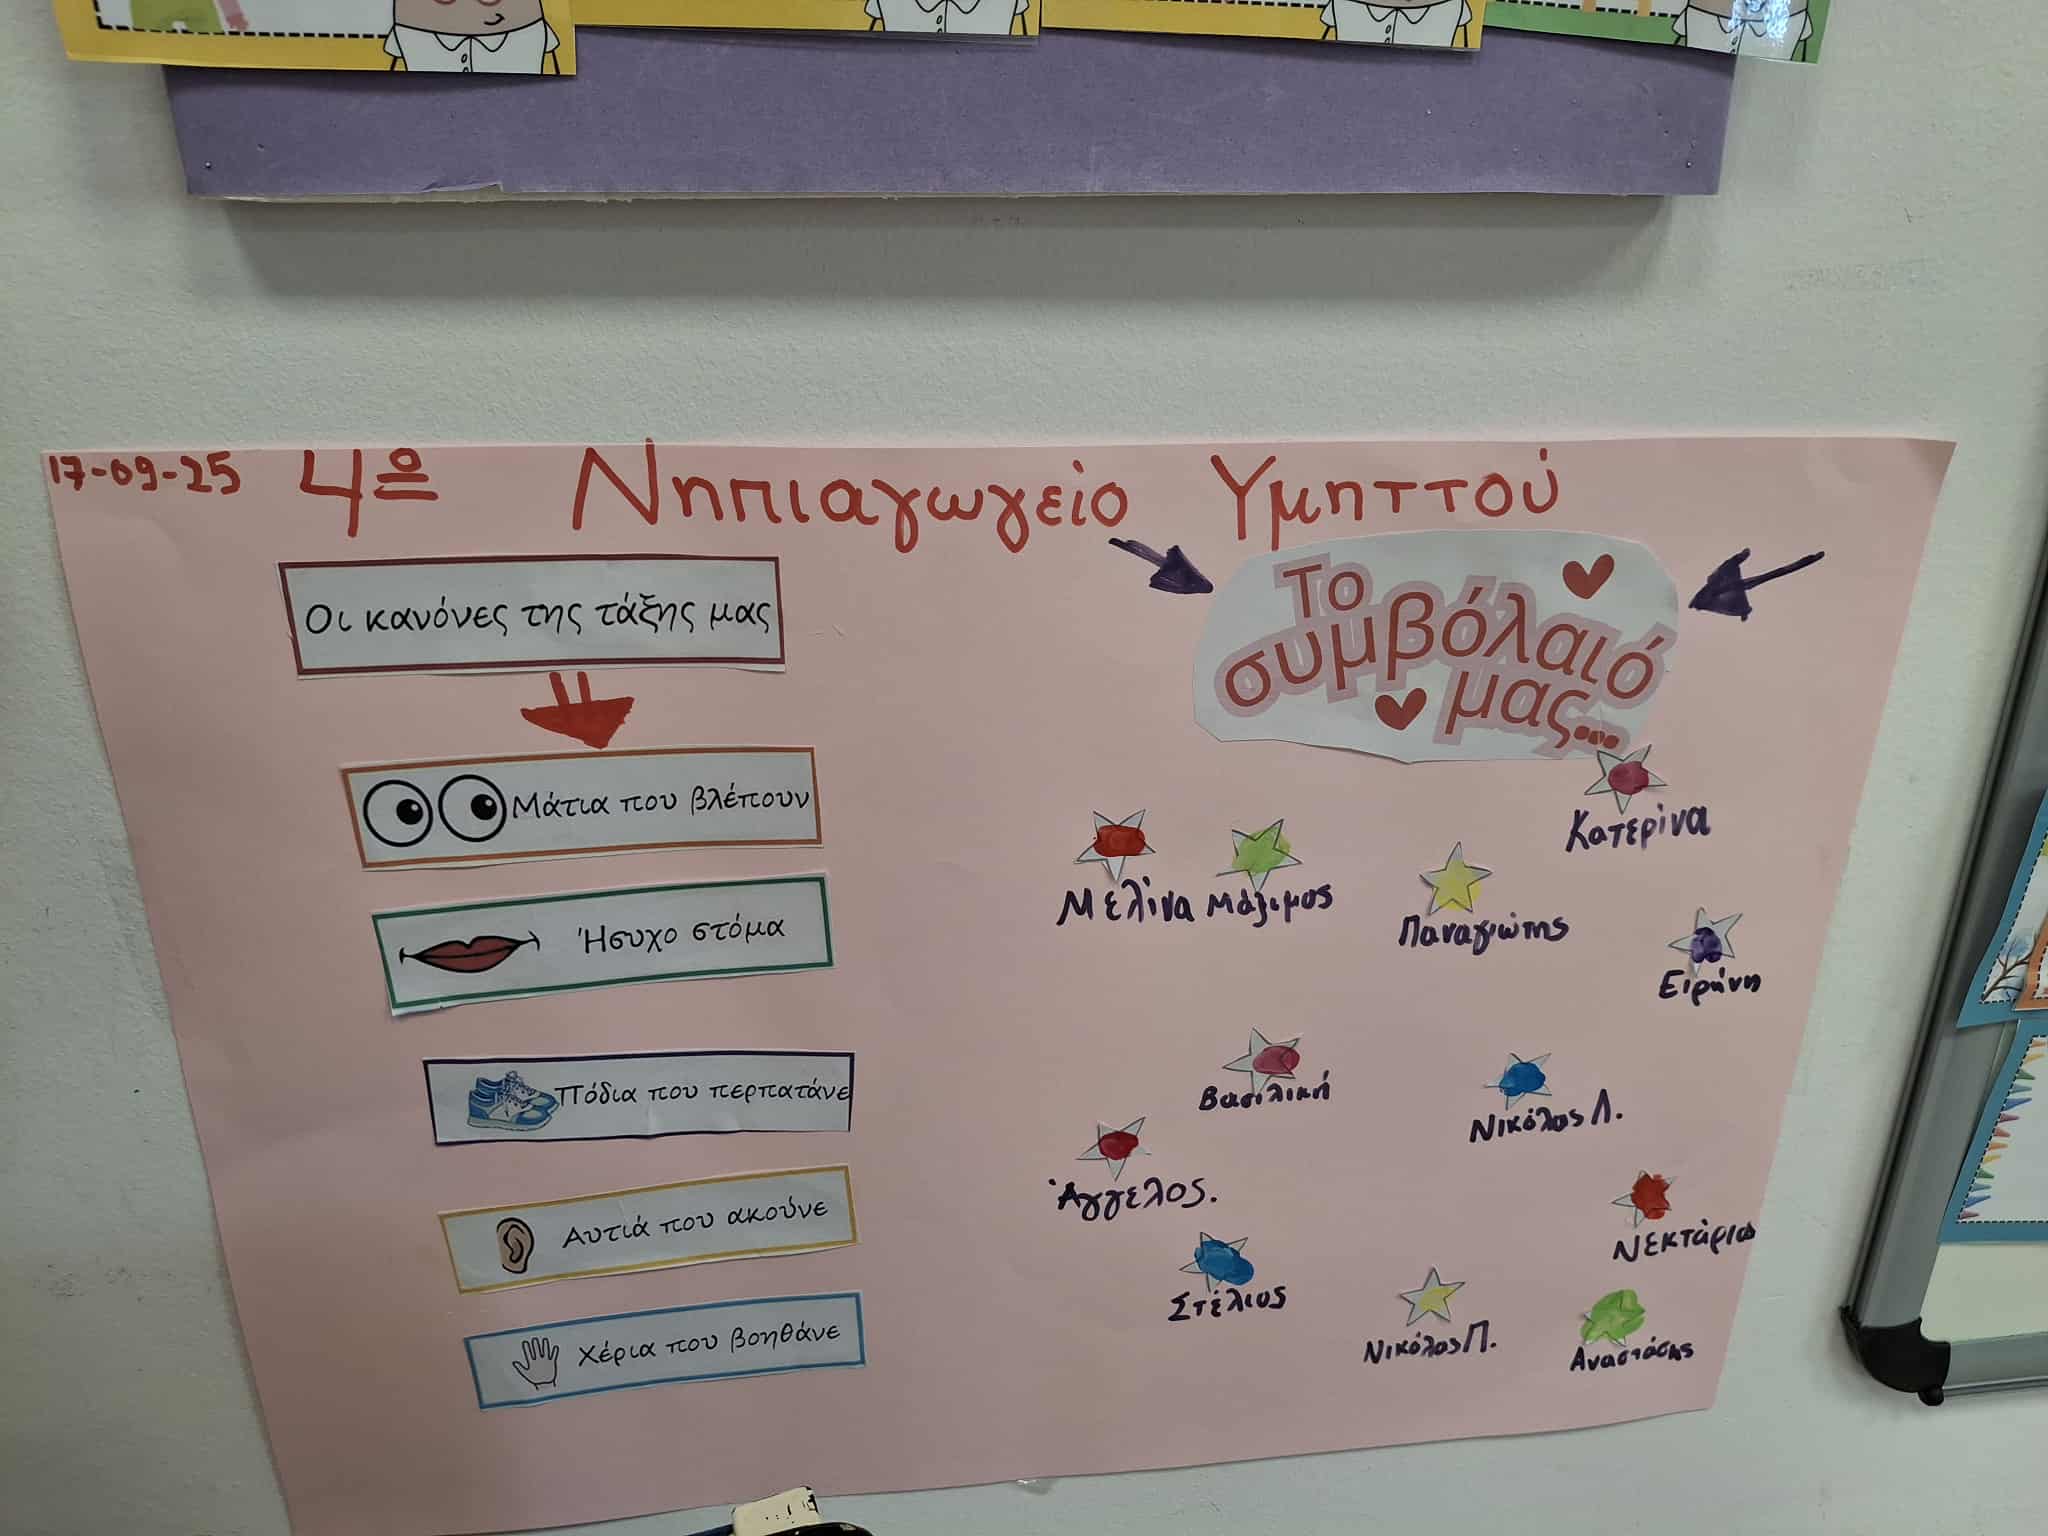 17-09-25 4º Νηπιαγωγείο Υμηττού
Οι κανόνες της τάξης μας
Μάτια που βλέπουν
Ήσυχο στόμα
Πόδια που περπατάνε
Αυτιά που ακούνε
Χέρια που βοηθάνε
Το
συμβόλαιό
μας...
Κατερίνα
Μελίνα Μάξιμος
Παναγιώτης
Ειρήνη
Βασιλική
Νικόλας Λ.
Άγγελος.
Νεκτάριος
Στέλιος
Νικόλας Π.
Αναστάσης